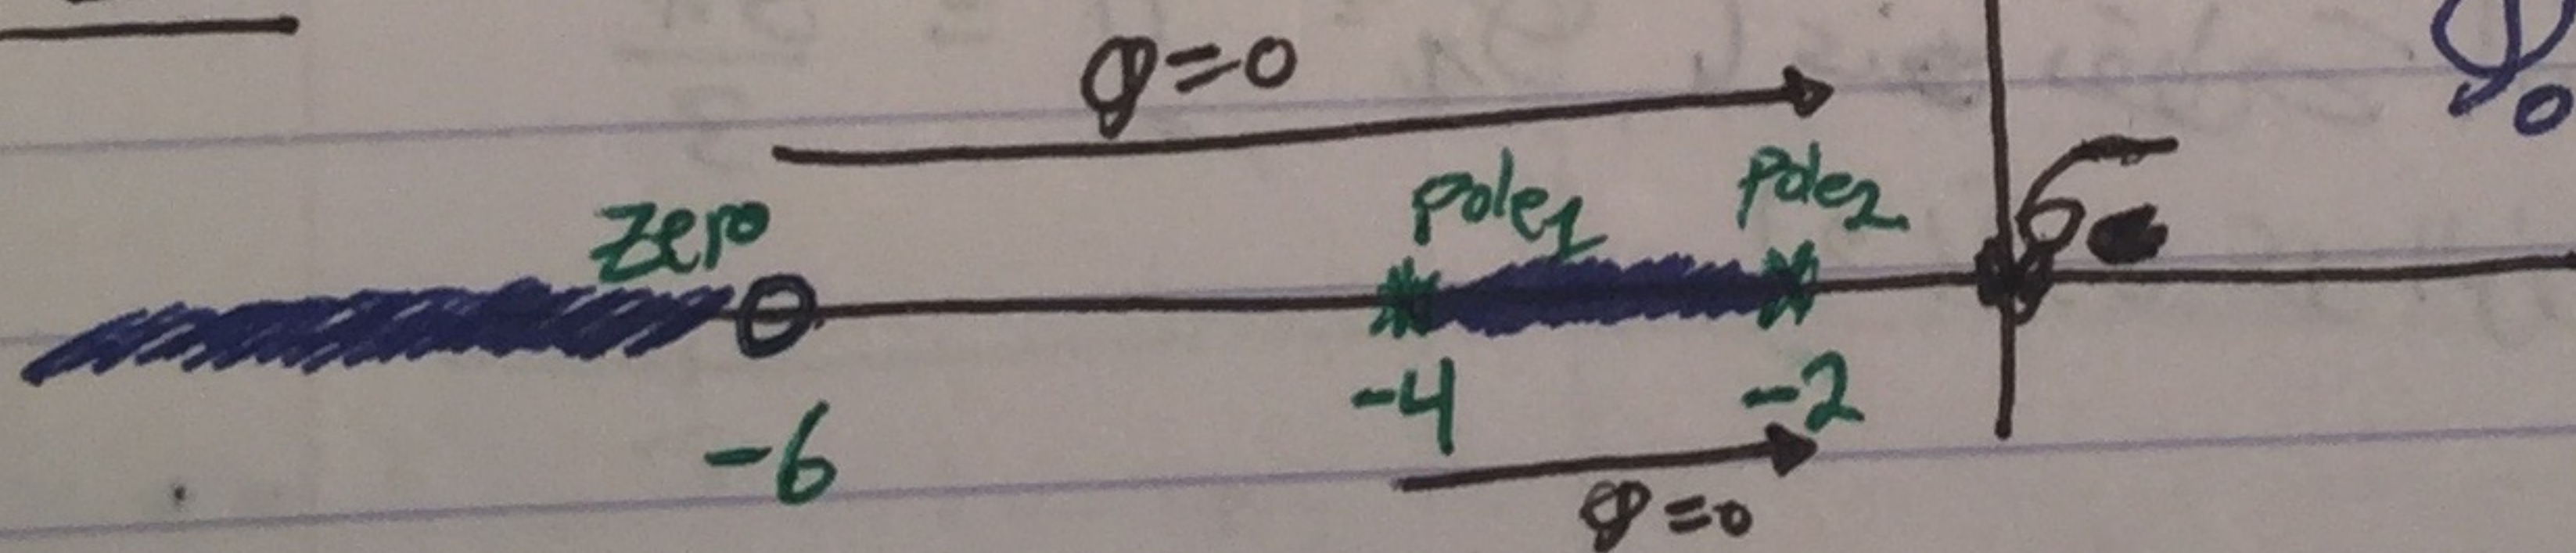 φ=0
zero pole1 pole2 σ
-6 -4 -2
φ=0